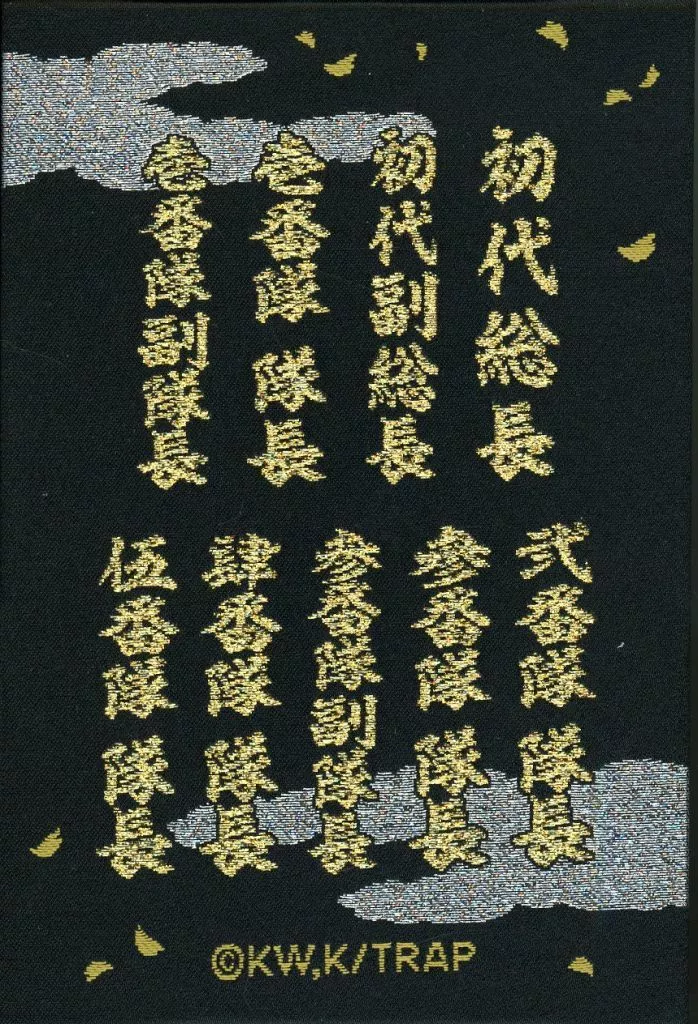 初代総長
初代副総長
壱番隊 隊長
壱番隊副隊長
弐番隊 隊長
参番隊 隊長
参番隊副隊長
肆番隊 隊長
伍番隊 隊長
©KW,K/TRAP